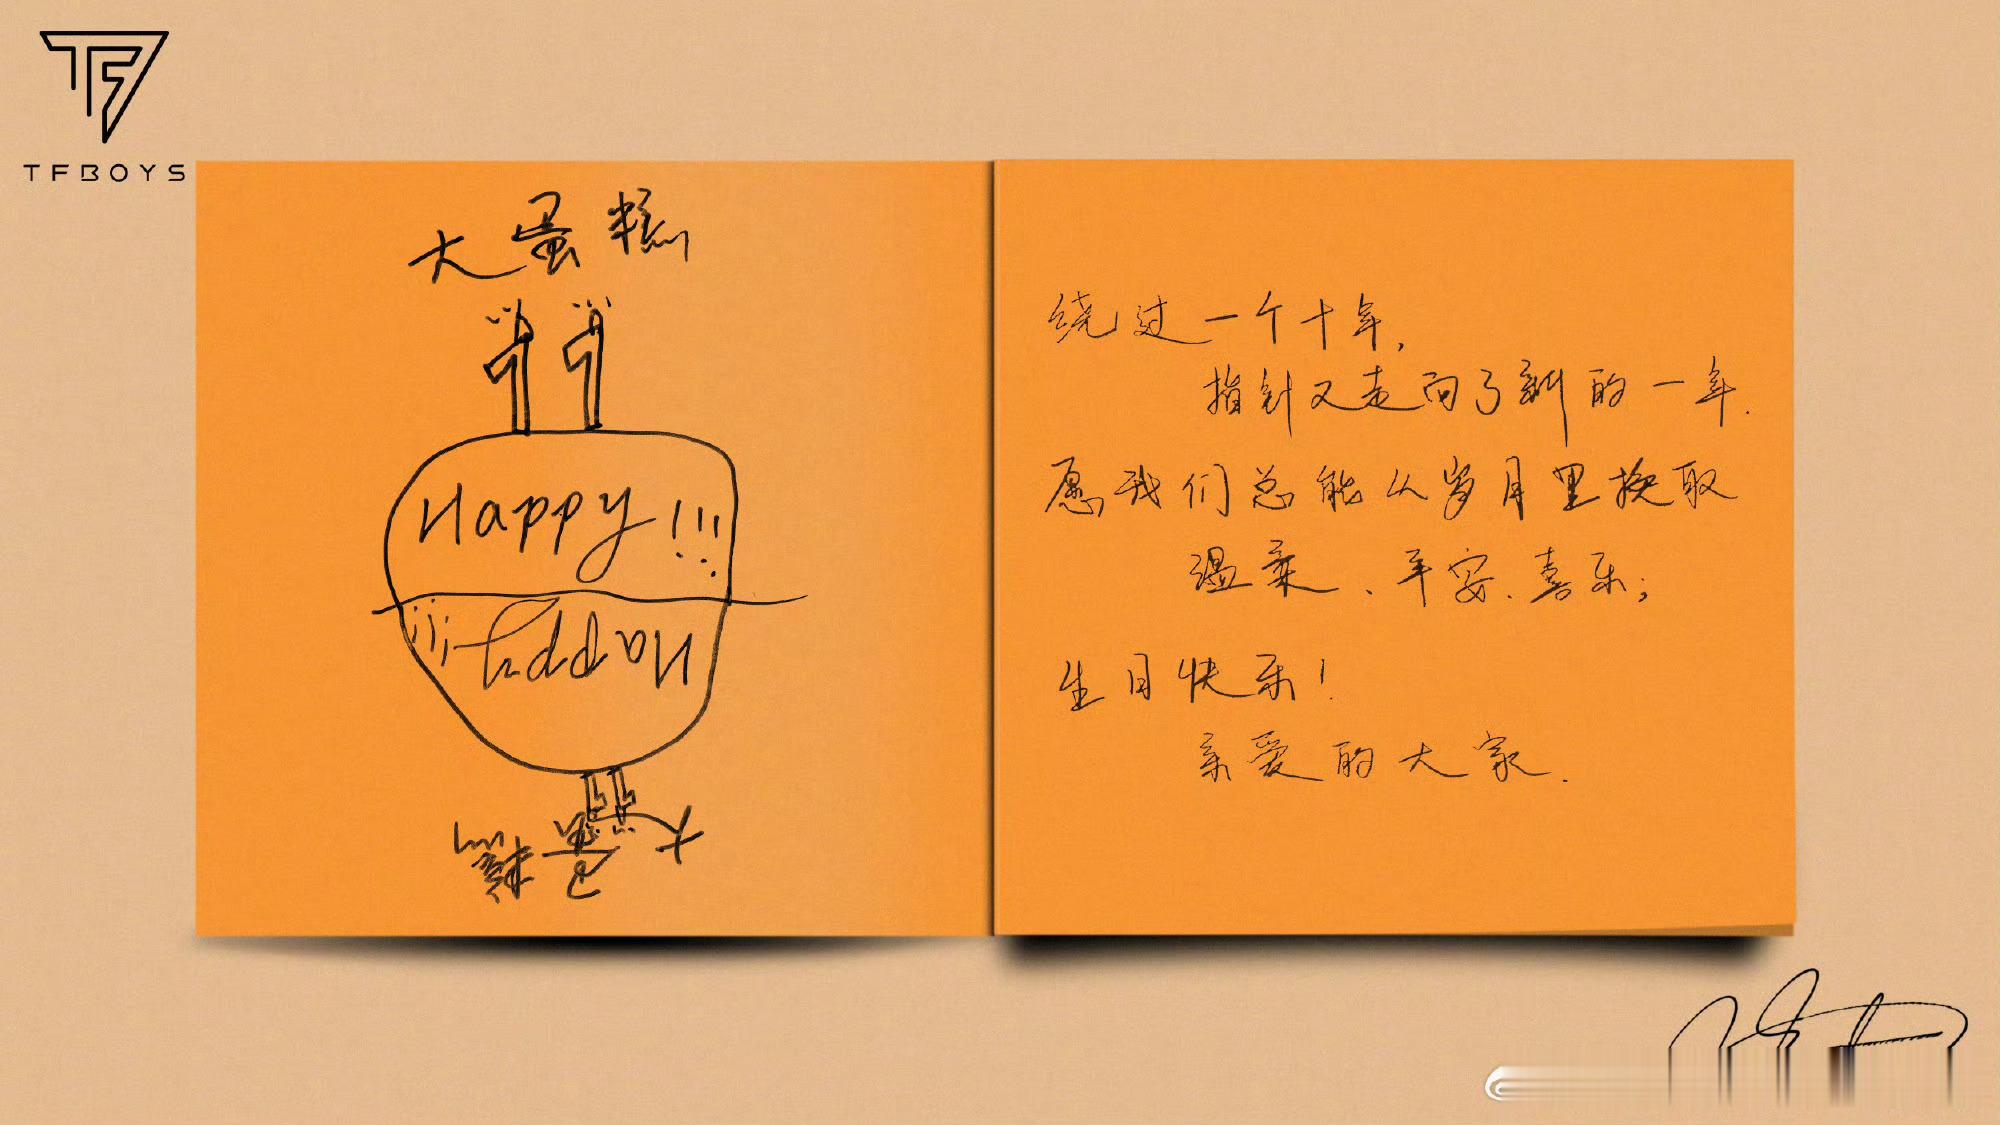 TF
TFBOYS
大蛋糕
11
Happy!!!
Happy!!!
11
大蛋糕
绕过一个十年,
指针又走向了新的一年.
愿我们总能从岁月里换取
温柔、平安、喜乐;
生日快乐!
亲爱的大家.